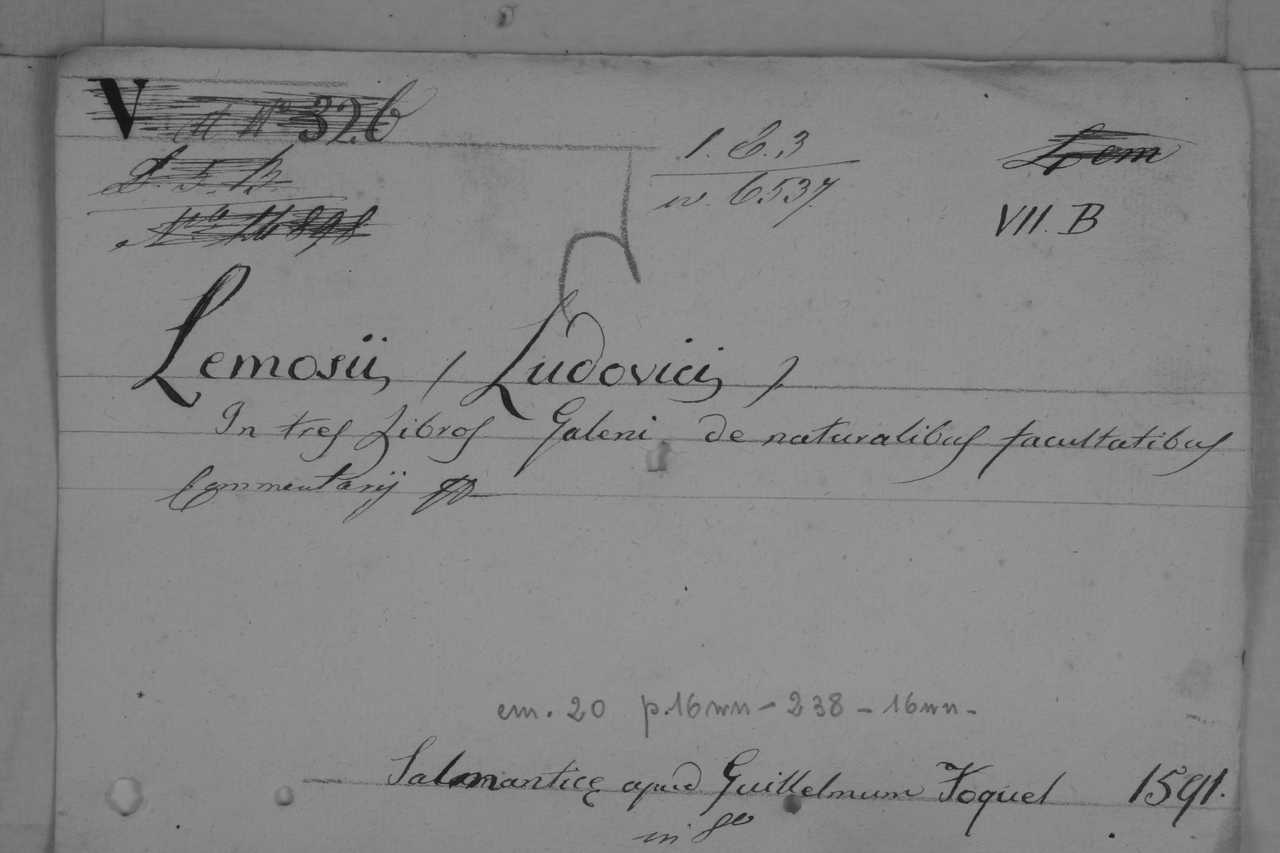 V 326
1. E. 3
n. 6537
Lem
VII. B
Lemosii, (Ludovici,)
In tres Libros Galeni de naturalibus facultatibus
Commentarij
cm. 20 p. 16 nn - 238 - 16 nn -
Salmanticę apud Guillelmum Foquel 1591.
in 8º